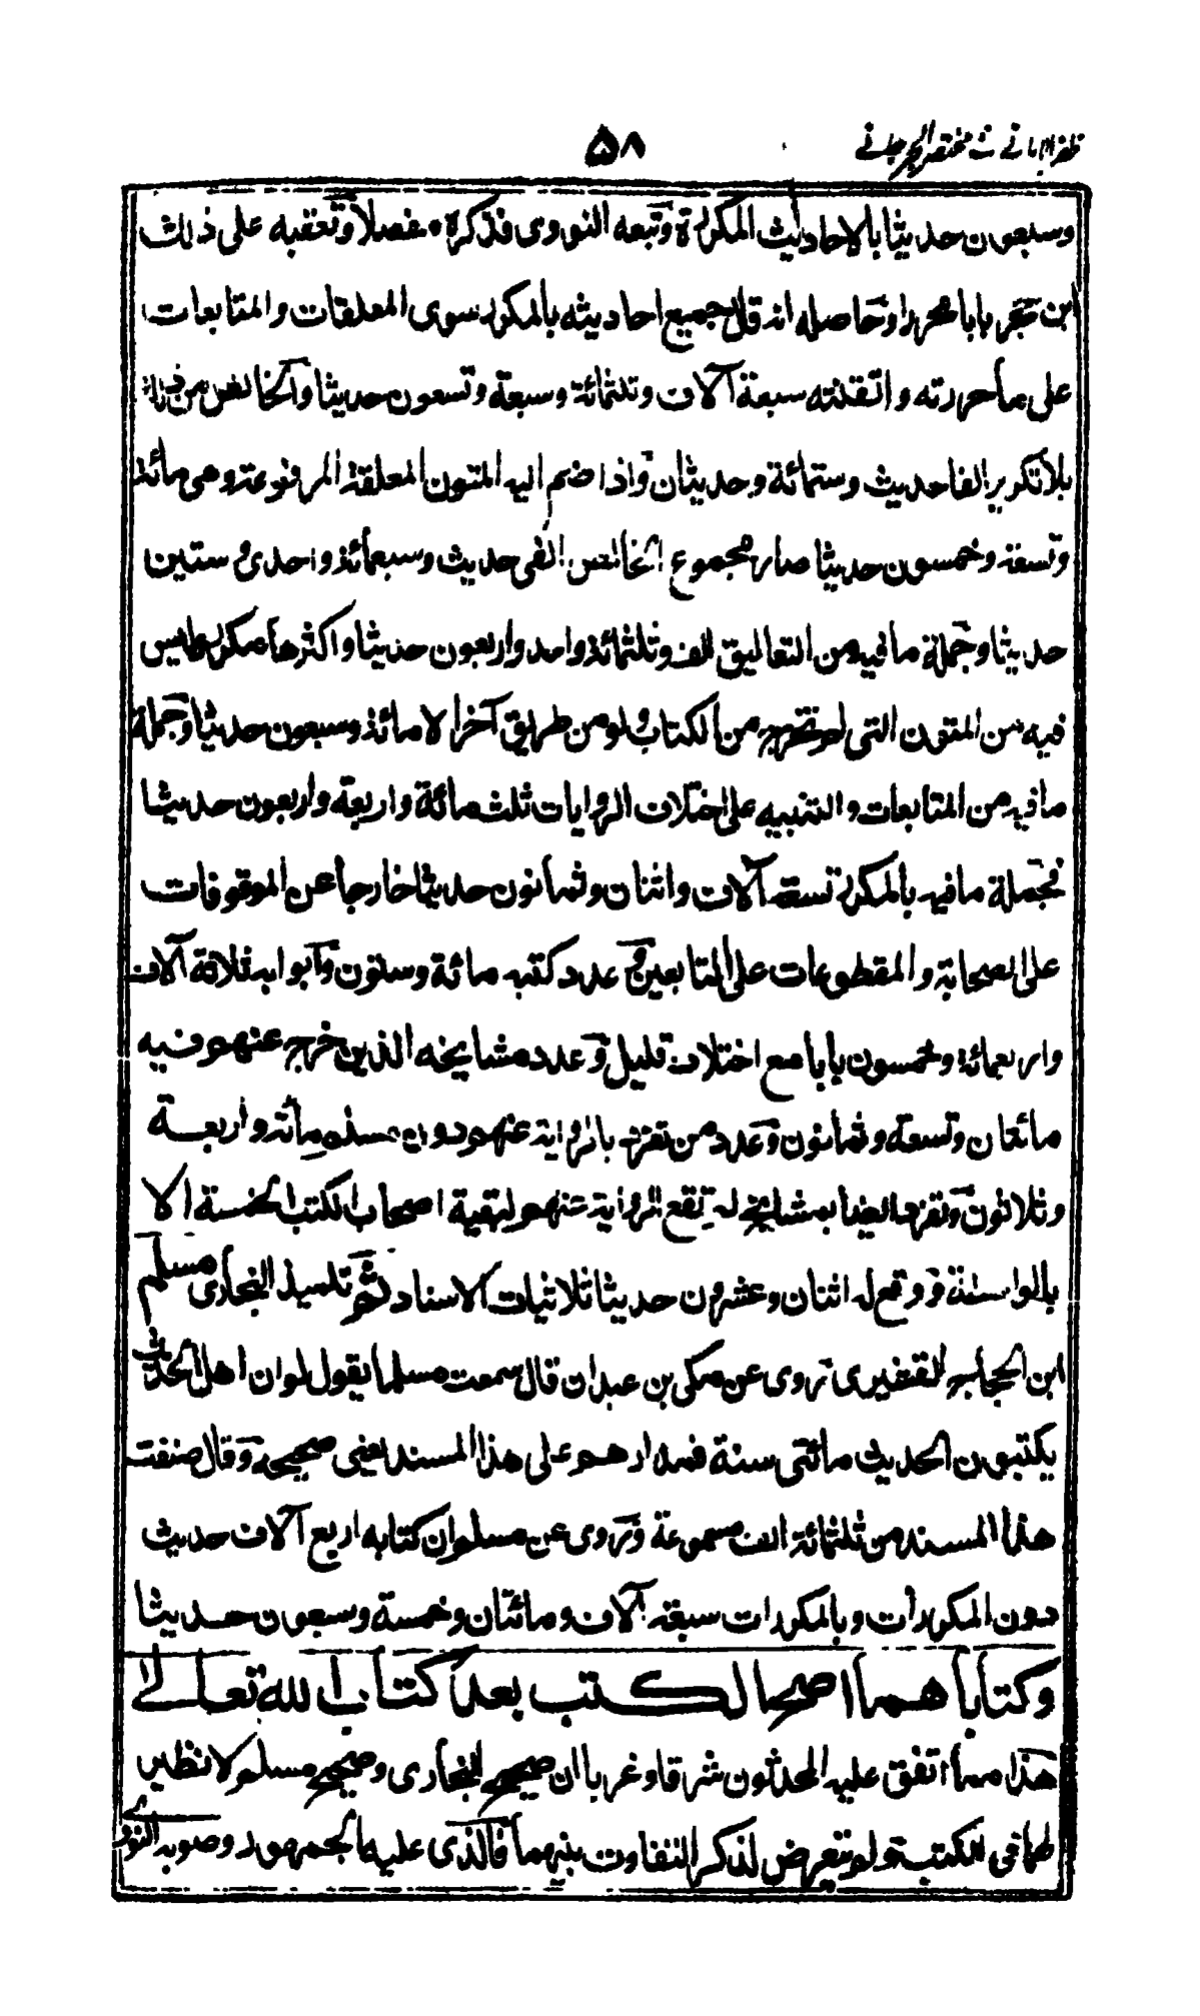 ظفر الامانی فی مختصر الجرجانی ۵۸
وسبعون حدیثا بالاحادیث المکررة وتبعه النووی فذکره مفصلا وتعقبه علی ذلك
ابن حجر بابا محررا وحاصله انه قال جمیع احادیثه بالمکرر سوی المعلقات والمتابعات
علی ما حررته واتقنته سبعة آلاف وثلثمائة وسبعة وتسعون حدیثا والخالص من ذلك
بلا تکریر الفا حدیث وستمائة وحدیثان واذا ضم الیه المتون المعلقة المرفوعة وهی مائة
وتسعة وخمسون حدیثا صار مجموع الخالص الفی حدیث وسبعمائة واحدی وستین
حدیثا وجملة ما فیه من التعالیق الف وثلثمائة واحد واربعون حدیثا واکثرها مکرر ولیس
فیه من المتون التی لم تخرج من الکتاب ولو من طریق آخر الا مائة وسبعون حدیثا وجملة
ما فیه من المتابعات والتنبیه علی اختلاف الروایات ثلث مائة واربعة واربعون حدیثا
فجملة ما فیه بالمکرر تسعة آلاف واثنان وثمانون حدیثا خارجا عن الموقوفات
علی الصحابة والمقطوعات علی التابعین وعدد کتبه مائة وستون وابوابه ثلاثة آلاف
واربعمائة وخمسون بابا مع اختلاف قلیل وعدد مشایخه الذین خرج عنهم فیه
مائتان وتسعة وثمانون وعدد من تفرد بالروایة عنهم دون مسلم مائة واربعة
وثلاثون وتفرد ایضا بمشایخ لم تقع الروایة عنهم لبقیة اصحاب الکتب الخمسة الا
بالواسطة ووقع له اثنان وعشرون حدیثا ثلاثیات الاسناد ثم تلمیذ البخاری مسلم
ابن الحجاج القشیری روی عن مکی بن عبدان قال سمعت مسلما یقول لو ان اهل الحدیث
یکتبون الحدیث مائتی سنة فمدارهم علی هذا المسند یعنی صحیحه وقال صنفت
هذا المسند من ثلثمائة الف مسموعة وروی عن مسلم ان کتابه اربع آلاف حدیث
دون المکررات وبالمکررات سبعة آلاف ومائتان وخمسة وسبعون حدیثا
وکتاباهما اصح الکتب بعد کتاب الله تعالی
هذا مما اتفق علیه المحدثون شرقا وغربا ان صحیح البخاری وصحیح مسلم لا نظیر
لهما فی الکتب ولم یتعرض لذکر التفاوت بینهما فالذی علیه الجمهور وصوبه النووی